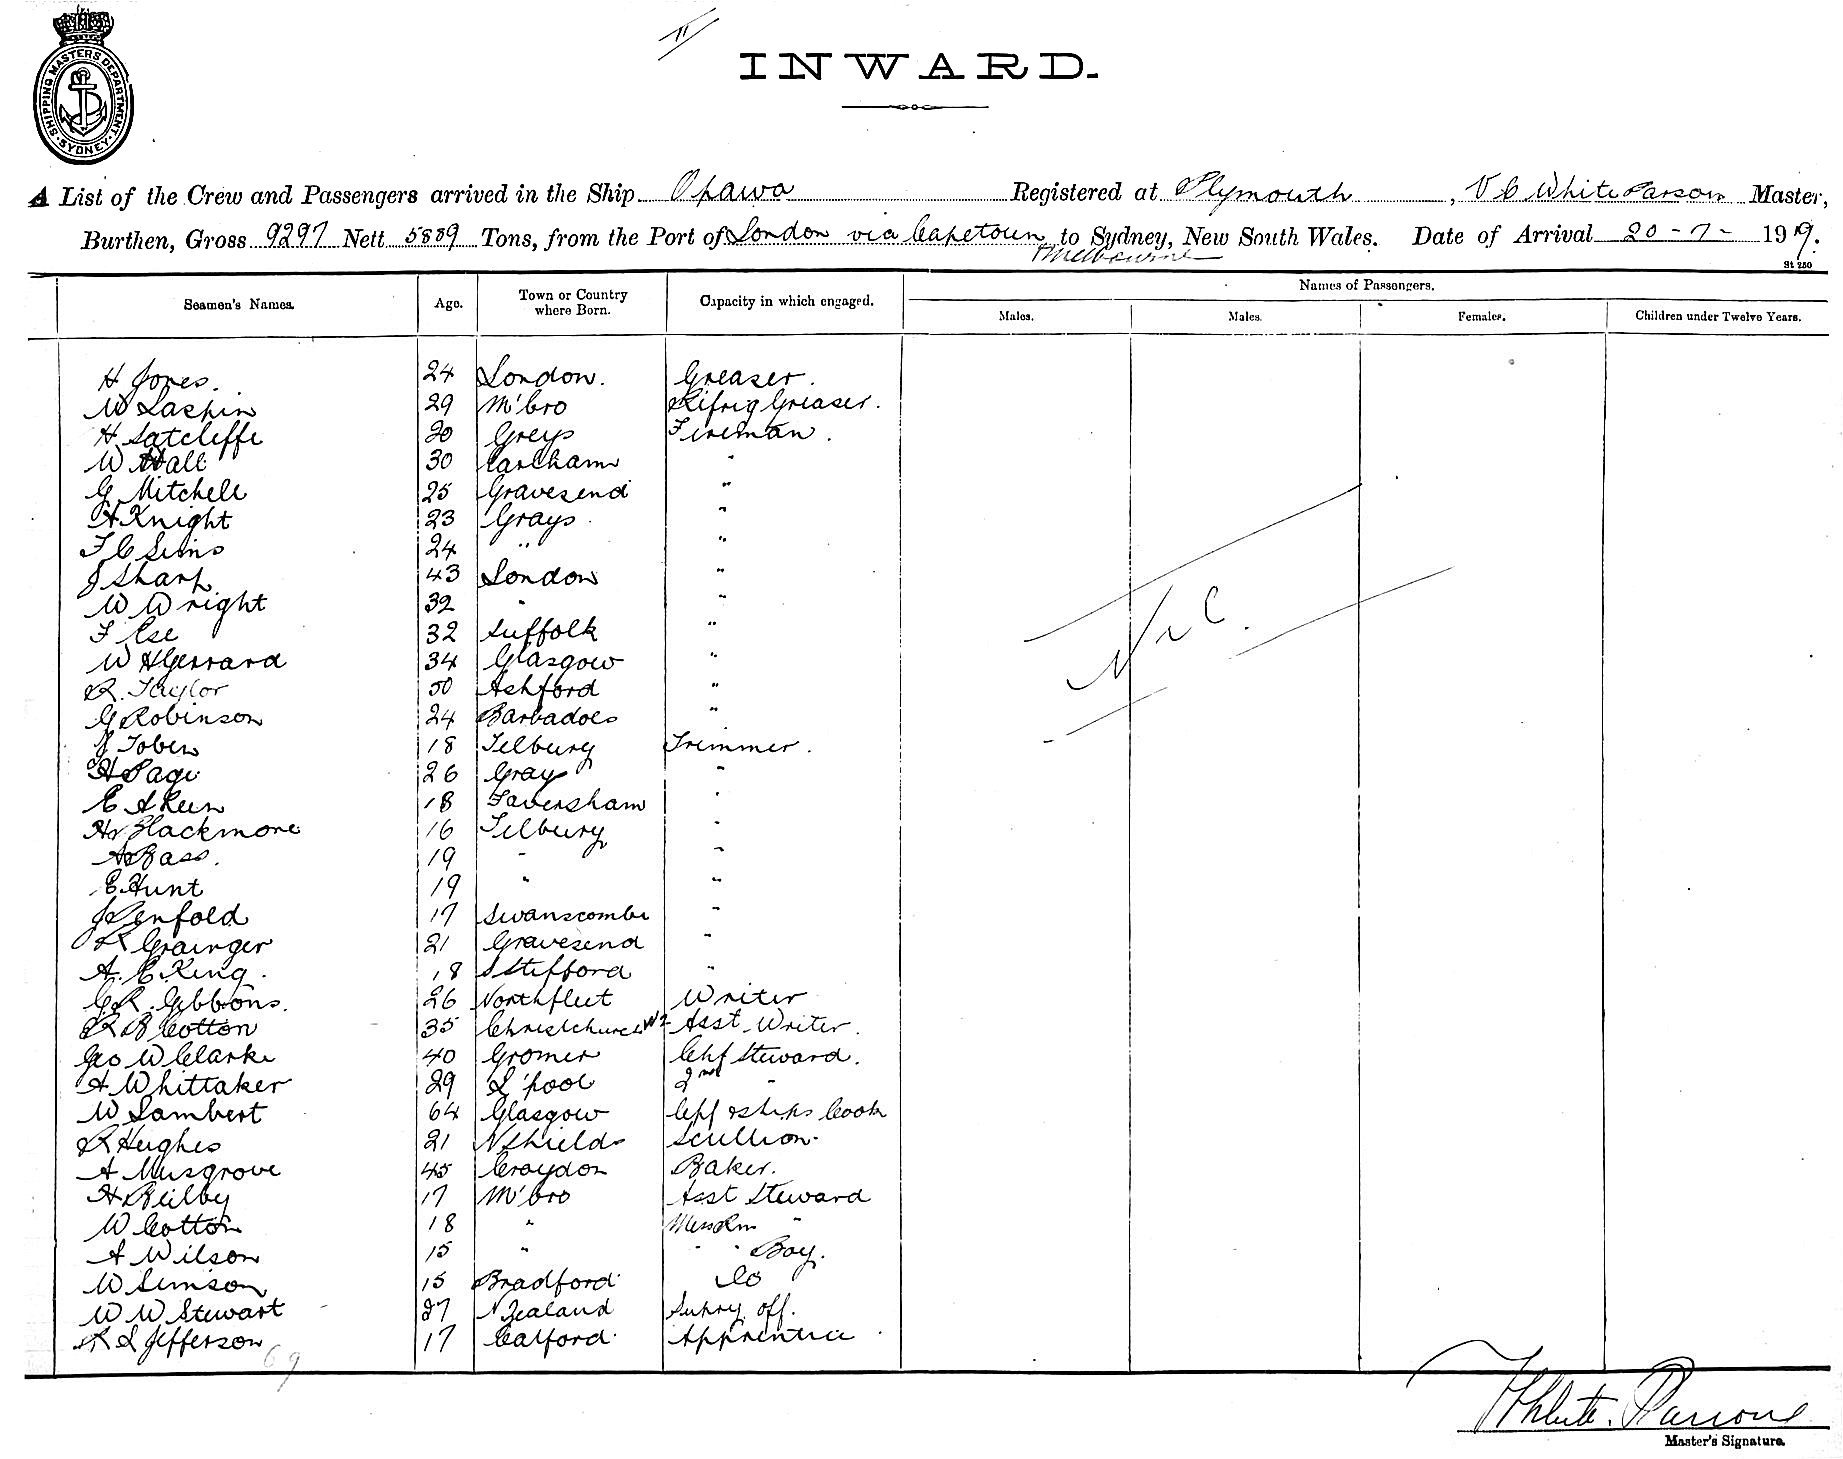 II
SHIPPING MASTERS DEPARTMENT
SYDNEY
INWARD.
A List of the Crew and Passengers arrived in the Ship Opawa Registered at Plymouth, V C White Parsons Master,
Burthen, Gross 9297 Nett 5889 Tons, from the Port of London via Capetown to Sydney, New South Wales. Date of Arrival 20-7-1919.
Melbourne
St 250
Seamen's Names. Age. Town or Country where Born. Capacity in which engaged. Names of Passengers.
Males. Males. Females. Children under Twelve Years.
H Jones. 24 London. Greaser.
W Laspin 29 M'bro Refrig Greaser.
H Satcliffe 20 Greys Fireman.
W Hall 30 "
G Mitchell 25 Gravesend "
H Knight 23 Grays "
F C Sims 24 " "
J Sharp 43 London "
W Wright 32 " "
F 32 Suffolk "
W H Gerrard 34 Glasgow "
R. Taylor 50 Ashford "
G Robinson 24 Barbadoes "
J Tobin 18 Tilbury Trimmer.
H Page 26 Grays "
E A Keen 18 Faversham "
Hy Blackmore 16 Tilbury "
A Bass. 19 " "
E Hunt 19 " "
J Penfold 17 Swanscombe "
R Grainger 21 Gravesend "
A. E. King. 18 S Stifford "
G R. Gibbons. 26 Northfleet Writer
R B Cotton 35 Christchurch NZ Asst Writer.
Geo W Clarke 40 Cromer Chf Steward.
A Whittaker 29 L'pool 2nd "
W Lambert 64 Glasgow Chf & Ships Cook
R Hughes 21 N Shields Scullion.
A Musgrove 45 Croydon Baker.
H Beilby 17 M'bro Asst Steward
W Cotton 18 " Mess Rm "
A Wilson 15 " " " Boy.
W Simson 15 Bradford Do
W W Stewart 27 N Zealand Supry. off.
R L Jefferson 17 Catford Apprentice
69
Nil.
White. Parsons
Master's Signature.